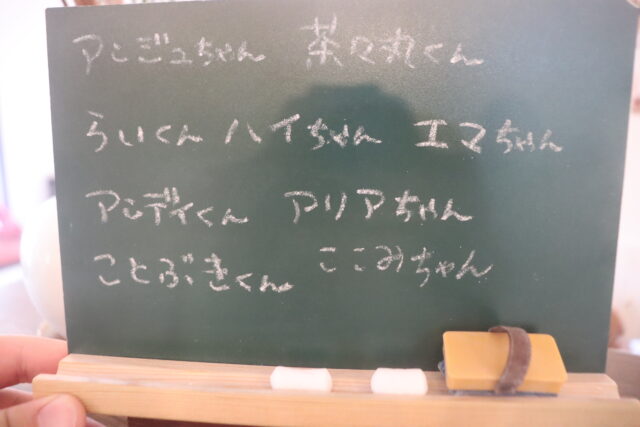 アンジュちゃん 茶々丸くん
らいくん ハイちゃん エマちゃん
アンディくん アリアちゃん
ことぶきくん ここみちゃん